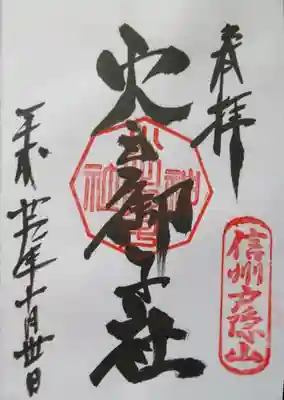 奉拝
信州戸隠山
火之御子社
平成廿六年十月卅日